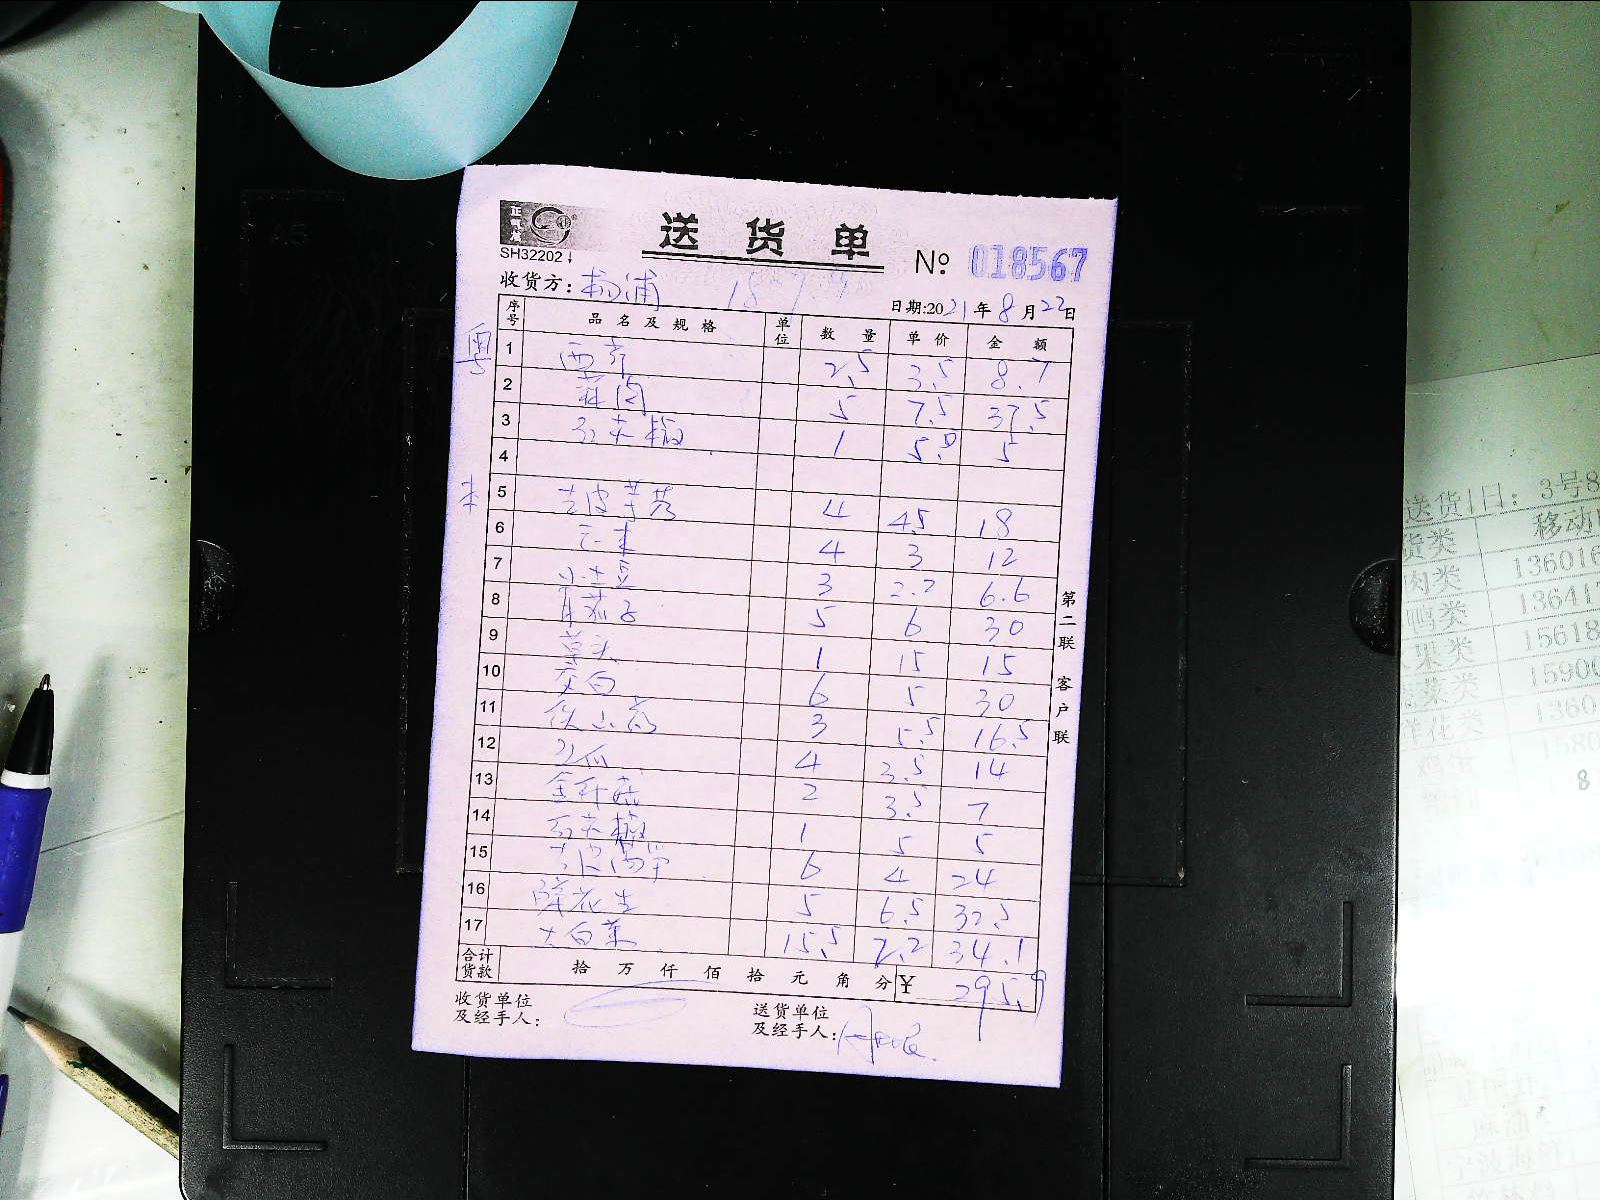 正野
送货单
SH32202
№ 018567
收货方: 杨浦
日期:2021年8月22日
序号 品名及规格 单位 数量 单价 金额
粤
1 西芹 2.5 3.5 8.7
2 蒜肉 5 7.5 37.5
3 红尖椒 1 5.0 5
4
本
5 去皮芋艿 4 4.5 18
6 玉米 4 3 12
7 小土豆 3 2.2 6.6
8 青茄子 5 6 30
9 草头 1 15 15
10 茭白 6 5 30
11 铁山药 3 5.5 16.5
12 冬瓜 4 3.5 14
13 金针菇 2 3.5 7
14 红尖椒 1 5 5
15 去皮莴笋 6 4 24
16 鲜花生 5 6.5 32.5
17 大白菜 15.5 2.2 34.1
合计货款 拾万仟佰拾元角分 ¥ 295.9
收货单位及经手人:
送货单位及经手人:
第二联 客户联
送货日: 3号8
货类 移动
肉类 13601
鸭类 1364
果类 15618
菜类 1590
洋花类 1360